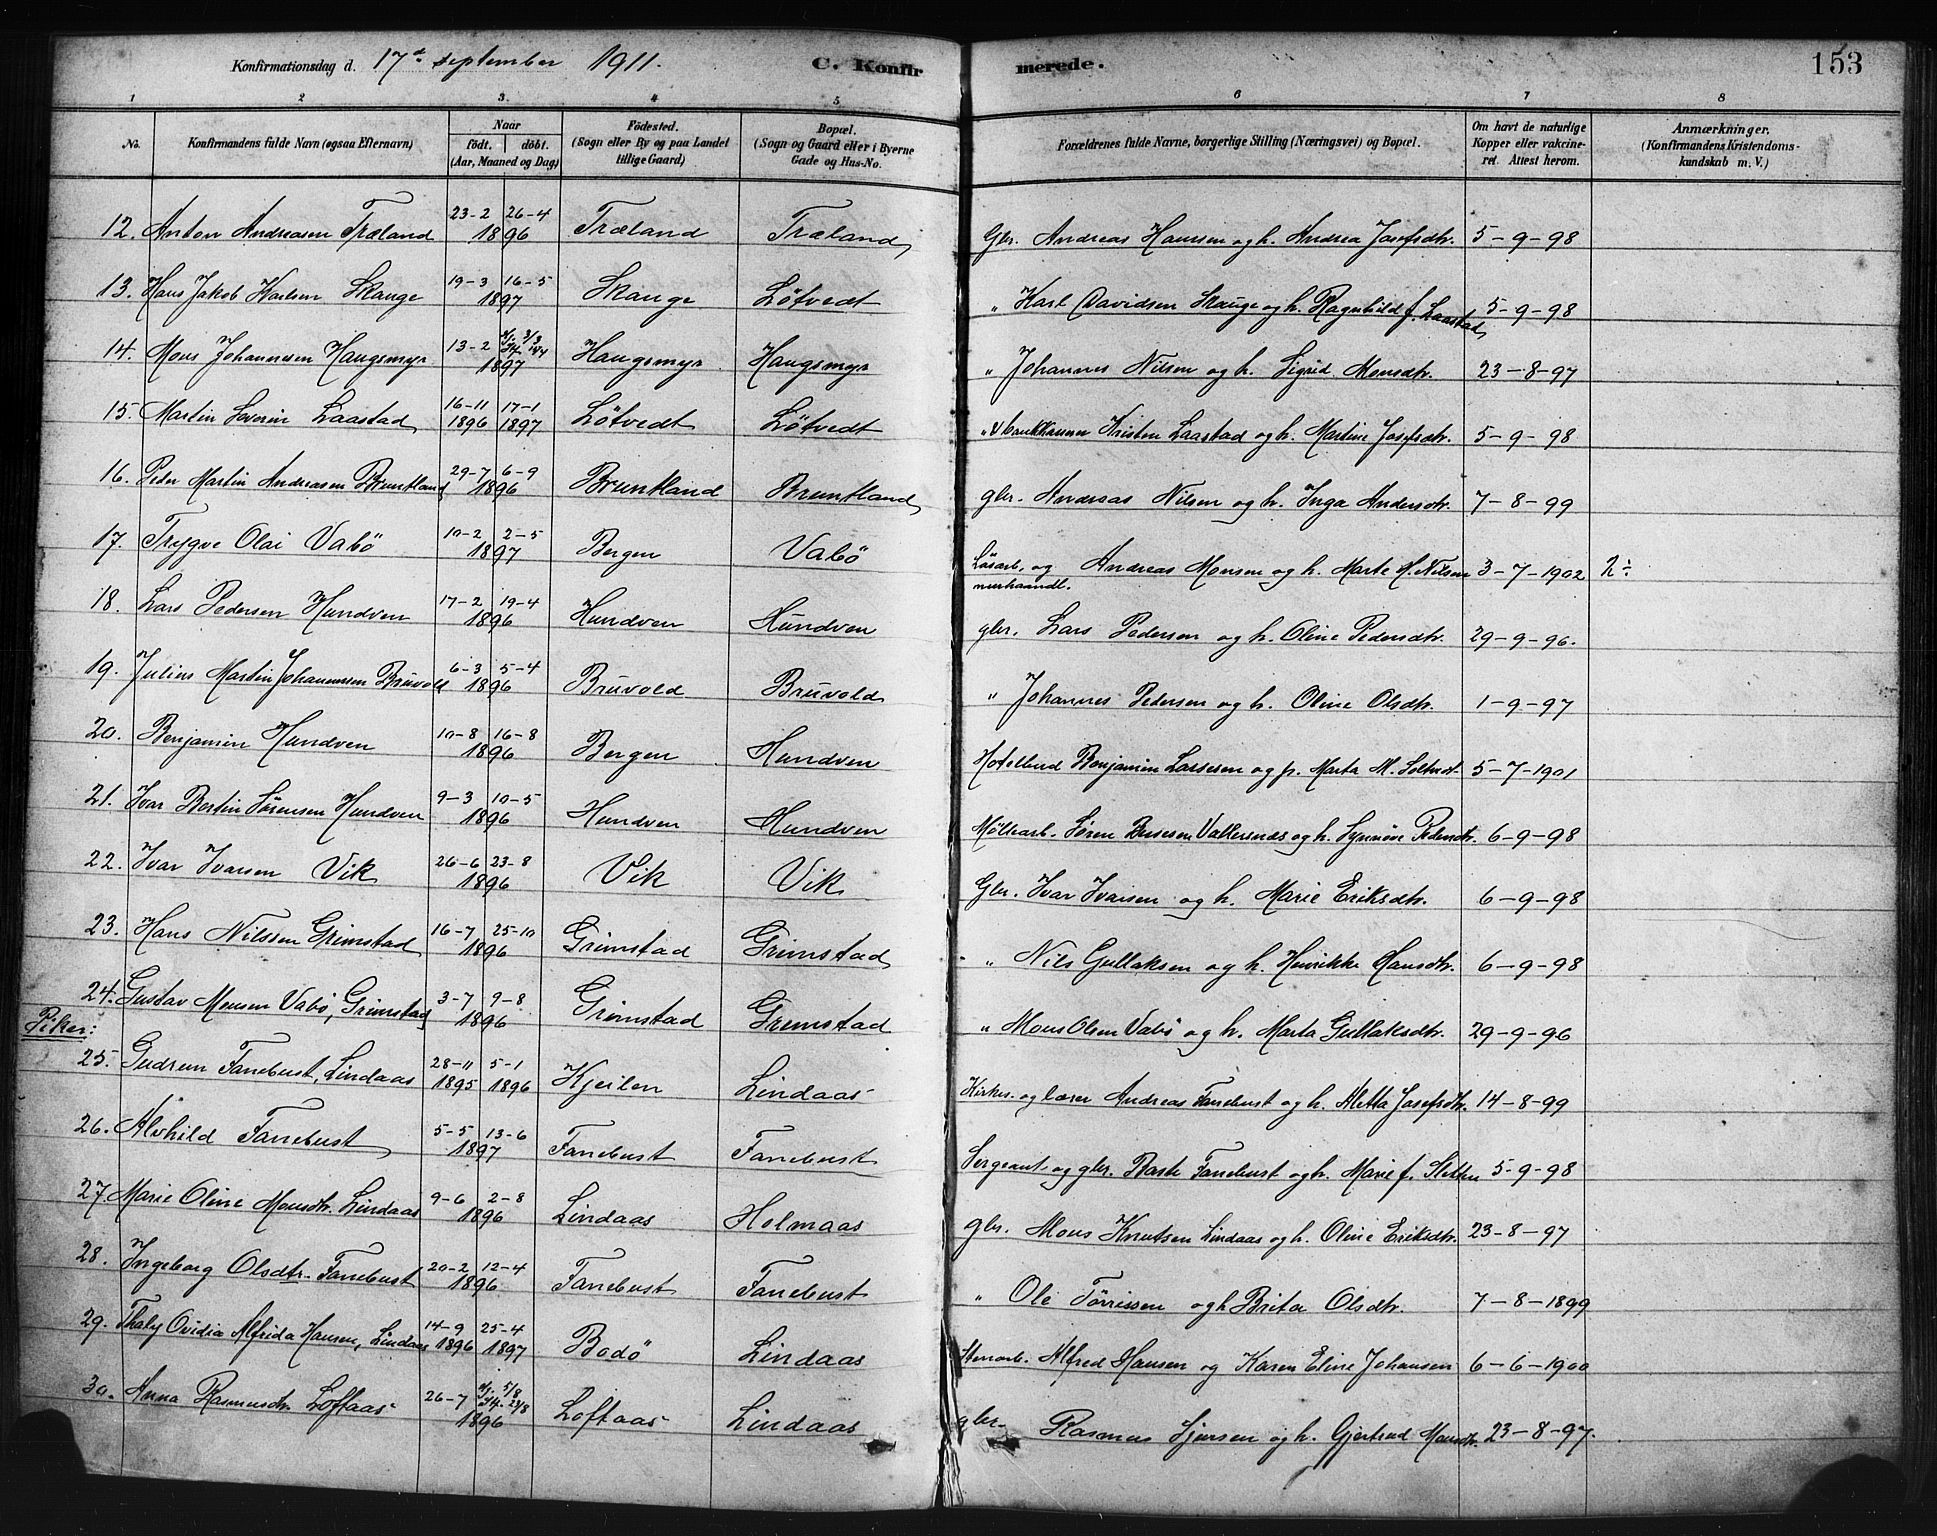 Konfirmationsdag d. 17d september 1911. C. Konfirmerede. 153
1 2 3. 4 5 6 7 8
No. Konfirmandens fulde Navn (ogsaa Efternavn) Naar födt. döbt. (Aar, Maaned og Dag) Födested. (Sogn eller By og paa Landet tillige Gaard) Bopæl. (Sogn og Gaard eller i Byerne Gade og Hus-No. Forældrenes fulde Navne, borgerlige Stilling (Næringsvei) og Bopæl. Om havt de naturlige Kopper eller vakcineret. Attest herom. Anmærkninger. (Konfirmandens Kristendomskundskab m. V.)
12. Anton Andreasen Træland 23-2 26-4 1896 Træland Træland Gbr. Andreas Hansen og h. Andrea Josefsdtr. 5-9-98
13. Hans Jakob Karlsen Skauge 19-3 16-5 1897 Skauge Lötvedt " Karl Davidsen Skauge og h. Ragnhild f. Laastad 5-9-98
14. Mons Johannesen Haugsmyr 13-2 Hj. 3/3 1897 Haugsmyr Haugsmyr " Johannes Nilsen og h. Sigrid Monsdtr. 23-8-97
15. Martin Severin Laastad 16-11 1896 17-1 1897 Lötvedt Lötvedt " Kristen Laastad og h. Martine Josefsdtr. 5-9-98
16. Peder Martin Andreasen Bruntland 29-7 6-9 1896 Bruntland Bruntland gbr. Andreas Nilsen og h. Inga Andersdtr. 7-8-99
17. Trygve Olai Vabö 10-2 2-5 1897 Bergen Vabö Lösarb. og Andreas Monsen og h. Marte H. Nilsen 3-7-1902
18. Lars Pedersen Hundven 17-2 19-4 1896 Hundven Hundven gbr. Lars Pedersen og h. Oline Pedersdtr. 29-9-96.
19. Julius Martin Johannesen Bruvold 6-3 5-4 1896 Bruvold Bruvold " Johannes Pedersen og h. Oline Olsdtr. 1-9-97
20. Benjamin Hundven 10-8 16-8 1896 Bergen Hundven Benjamin Larsen og p. Marta M. 5-7-1901
21. Ivar Bertin Sörensen Hundven 9-3 10-5 1896 Hundven Hundven Möllearb. Sören Valkersnæs og h. Synnöve Pedersdtr. 6-9-98
22. Ivar Ivarsen Vik 26-6 23-8 1896 Vik Vik Gbr. Ivar Ivarsen og h. Marie Eriksdtr. 6-9-98
23. Hans Nilssen Grimstad 16-7 25-10 1896 Grimstad Grimstad " Nils Gullaksen og h. Henrikke Hansdtr. 6-9-98
24. Gustav Monsen Vabö, Grimstad 3-7 9-8 1896 Grimstad Grimstad " Mons Olsen Vabö og h. Marta Gullaksdtr. 29-9-96
Piker:
25. Gudrun Fanebust, Lindaas 28-11 1895 5-1 1896 Kjeilen Lindaas Kirkes. og lærer Andreas Fanebust og h. Aletta Josefsdtr. 14-8-99
26. Alvhild Fanebust 5-5 13-6 1897 Fanebust Fanebust Sergeant og gbr. Baste Fanebust og h. Marie f. Sletten 5-9-98
27. Marie Oline Monsdtr. Lindaas 9-6 2-8 1896 Lindaas Holmaas gbr. Mons Knutsen Lindaas og h. Oline Eriksdtr. 23-8-97
28. Ingeborg Olsdtr. Fanebust 20-2 12-4 1896 Fanebust Fanebust " Ole Törrissen og h. Brita Olsdtr. 7-8-1899
29. Thaly Ovidia Alfrida Hansen, Lindaas 14-9 1896 25-4 1897 Bodö Lindaas Stenarb. Alfred Hansen og Karen Eline Johansen 6-6-1900
30. Anna Rasmusdtr. Loftaas 26-7 Hj. 5/8 23/8 1896 Loftaas Lindaas gbr. Rasmus Sjursen og h. Gjertrud Monsdtr. 23-8-97.